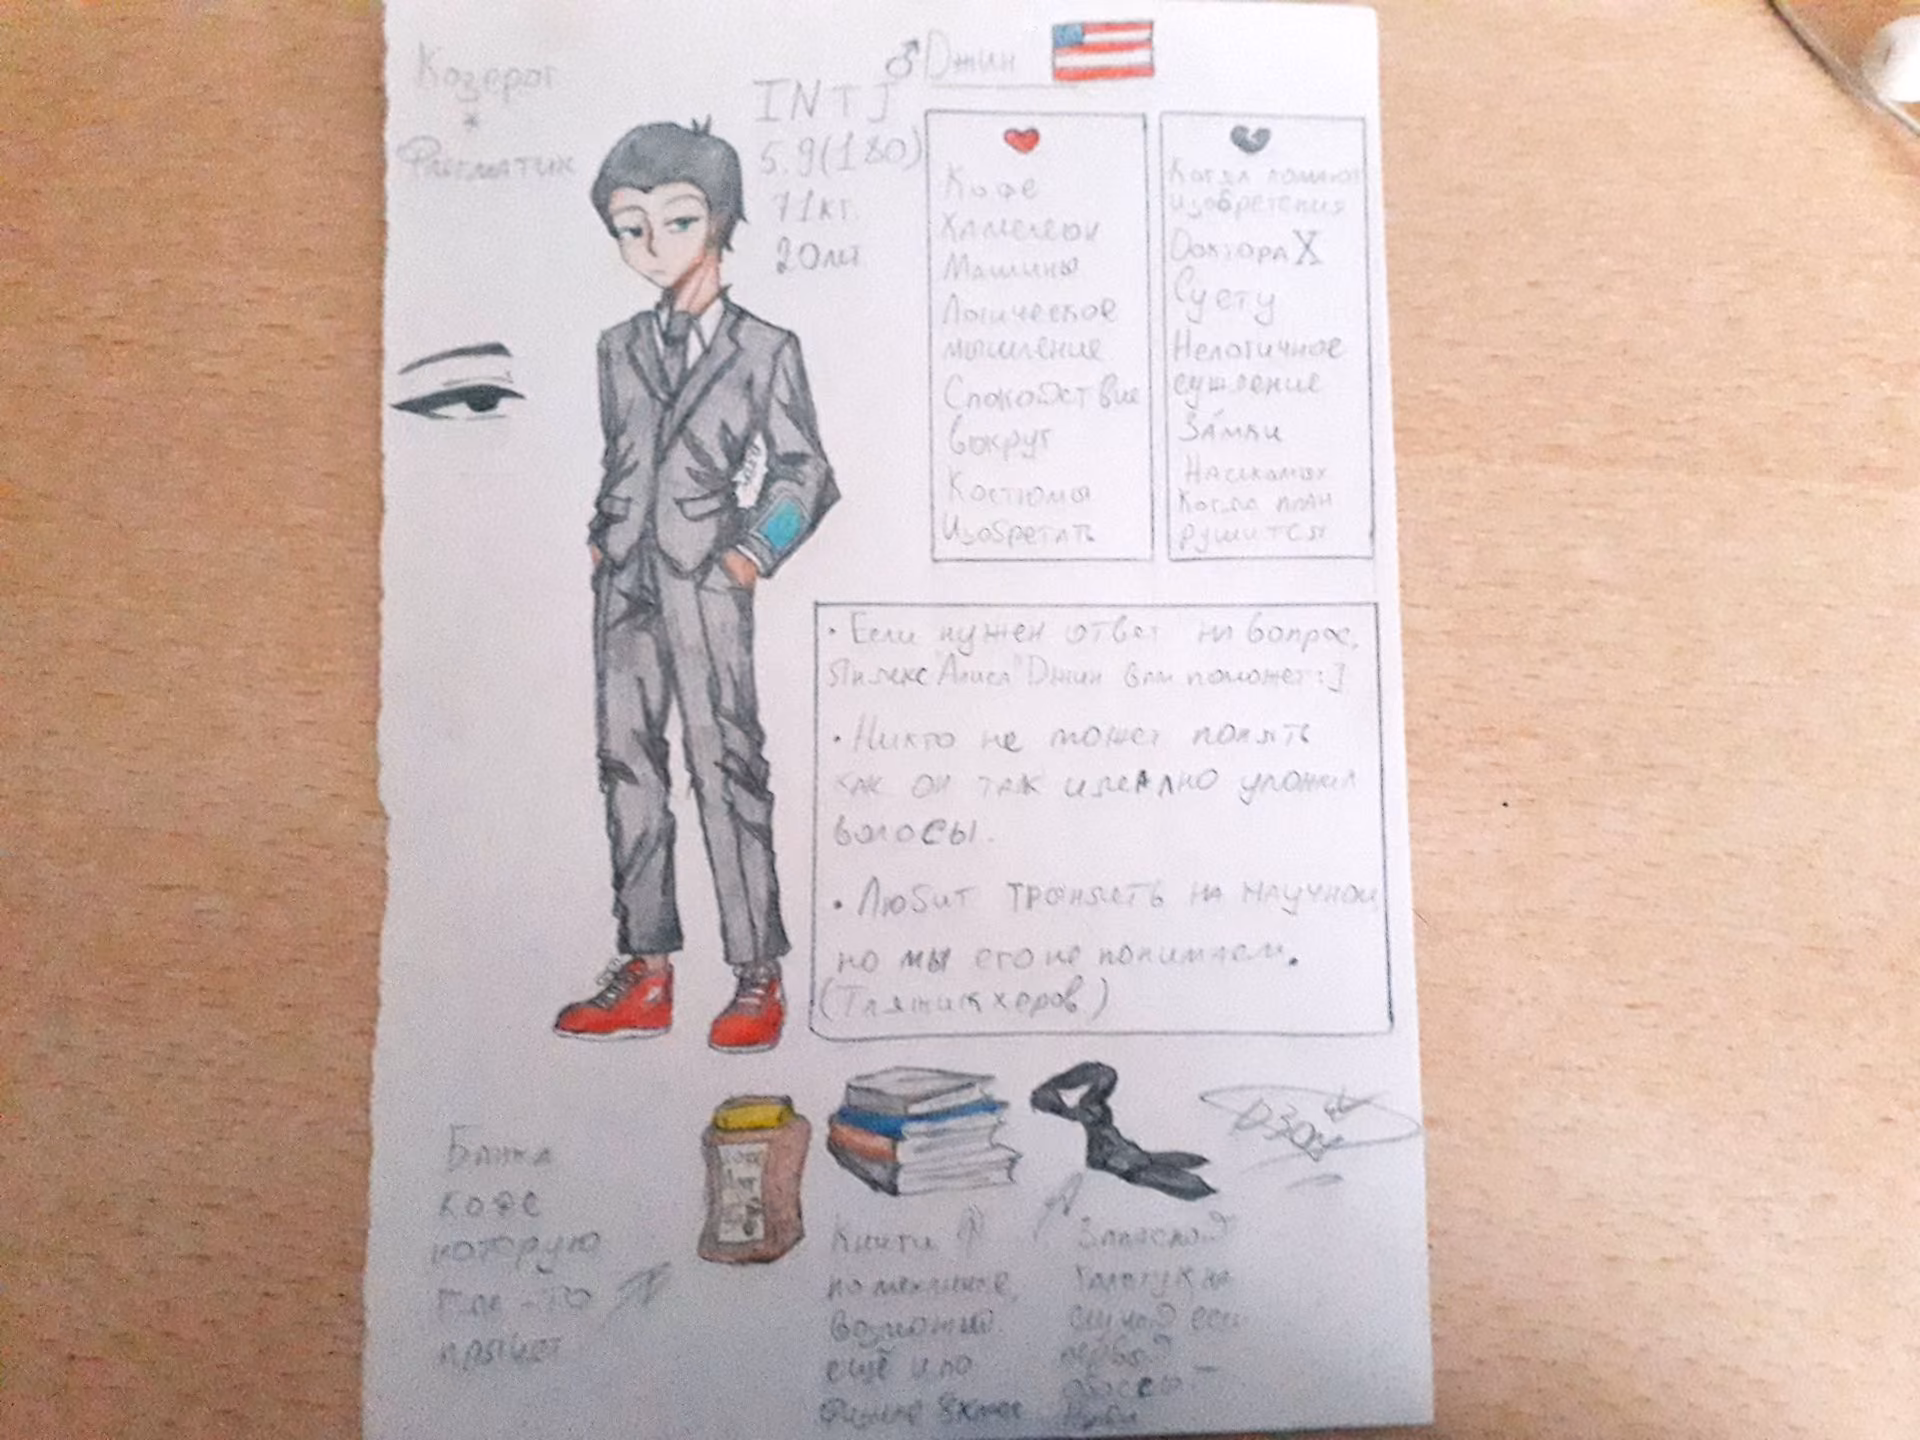 Козерог
*
Флегматик
♂ Джин
INTJ
5.9(180)
71кг.
20лет
Кофе
Хамелеон
Машины
Логическое
мышление
Спокойствие
вокруг
Костюмы
Изобретать
Когда ломают
изобретения
Доктора X
Суету
Нелогичное
суждение
Замки
Насекомых
Когда план
рушится
• Если нужен ответ на вопрос,
Яндекс "Алиса" Джин вам поможет:]
• Никто не может понять
как он так идеално уложил
волосы.
• Любит на научном
но мы его не понимаем.
Банка
кофе
которую
где-то
прячет
Книги
по механике,
возможно
ещё и по
физике 8класс
Запасной
галстук на
случай если
первый